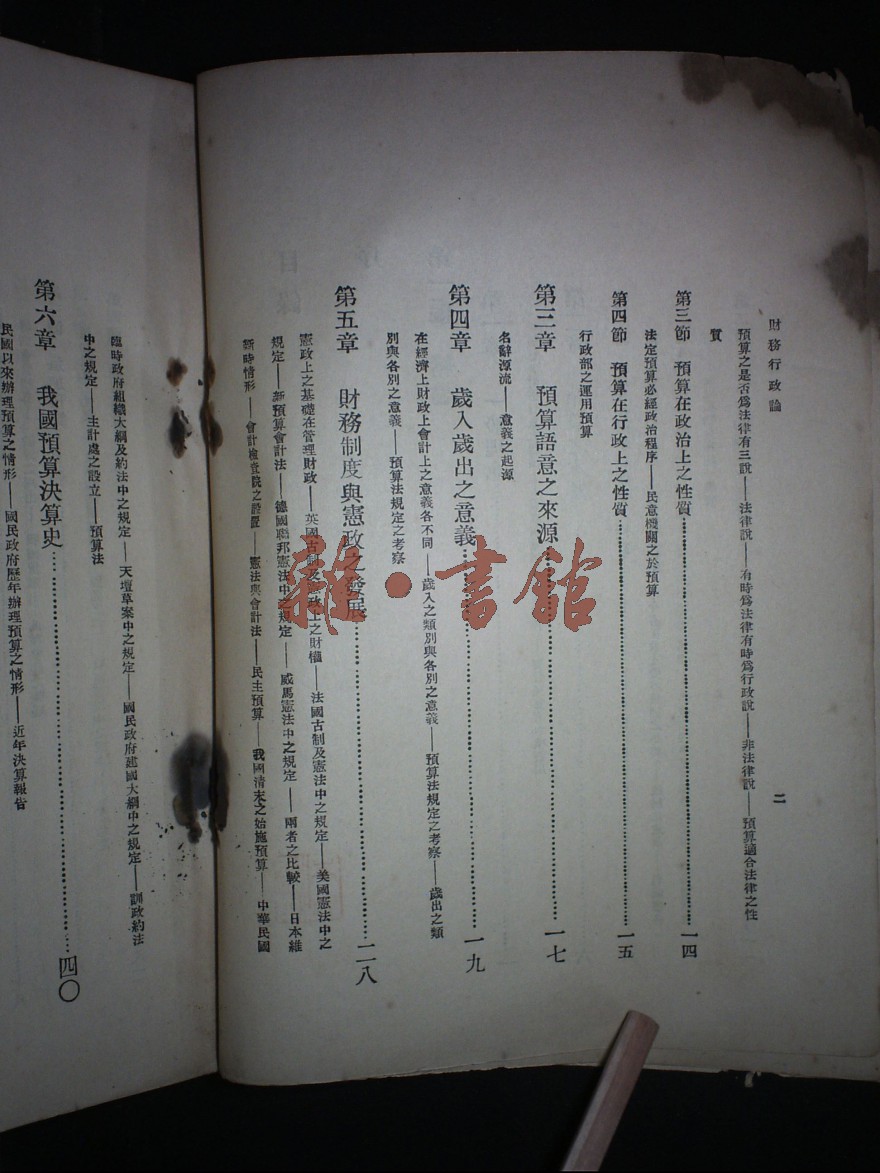 財務行政論
二
預算之是否爲法律有三說——法律說——有時爲法律有時爲行政說——非法律說——預算適合法律之性
質
第三節　預算在政治上之性質……一四
法定預算必經政治程序——民意機關之於預算
第四節　預算在行政上之性質……一五
行政部之運用預算
第三章　預算語意之來源……一七
名辭源流——意義之起源
第四章　歲入歲出之意義……一九
在經濟上財政上會計上之意義各不同——歲入之類別與各別之意義——預算法規定之考察——歲出之類
別與各別之意義——預算法規定之考察
第五章　財務制度與憲政之發展……二八
憲政上之基礎在管理財政——英國古制及憲政上之財權——法國古制及憲法中之規定——美國憲法中之
規定——新預算會計法——德國聯邦憲法中之規定——威馬憲法中之規定——兩者之比較——日本維
新時情形——會計檢查院之設置——憲法與會計法——民主預算——我國清末之始施預算——中華民國
臨時政府組織大綱及約法中之規定——天壇草案中之規定——國民政府建國大綱中之規定——訓政約法
中之規定——主計處之設立——預算法
第六章　我國預算決算史……四〇
民國以來辦理預算之情形——國民政府歷年辦理預算之情形——近年決算報告
雜·書館